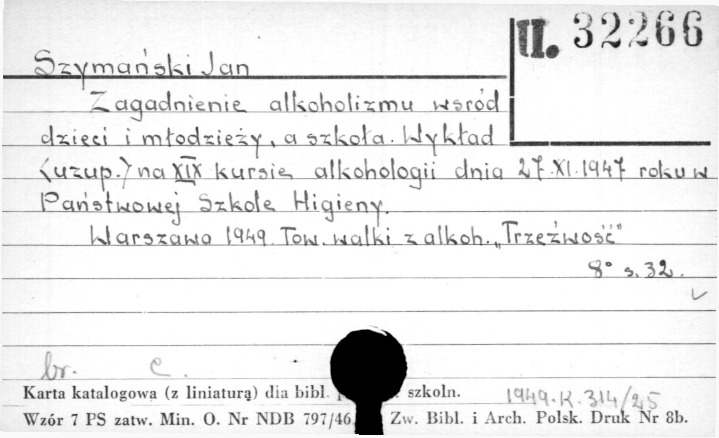 U. 32266
Szymański Jan
Zagadnienie alkoholizmu wśród
dzieci i młodzieży, a szkoła. Wykład
(uzup.) na XIX kursie alkohologii dnia 27.XI.1947 roku w
Państwowej Szkole Higieny.
Warszawa 1949. Tow. walki z alkoh. „Trzeźwość"
8° s. 32.
br. C.
Karta katalogowa (z liniaturą) dia bibl. szkoln.
1949.K.314/25
Wzór 7 PS zatw. Min. O. Nr NDB 797/46. Zw. Bibl. i Arch. Polsk. Druk Nr 8b.